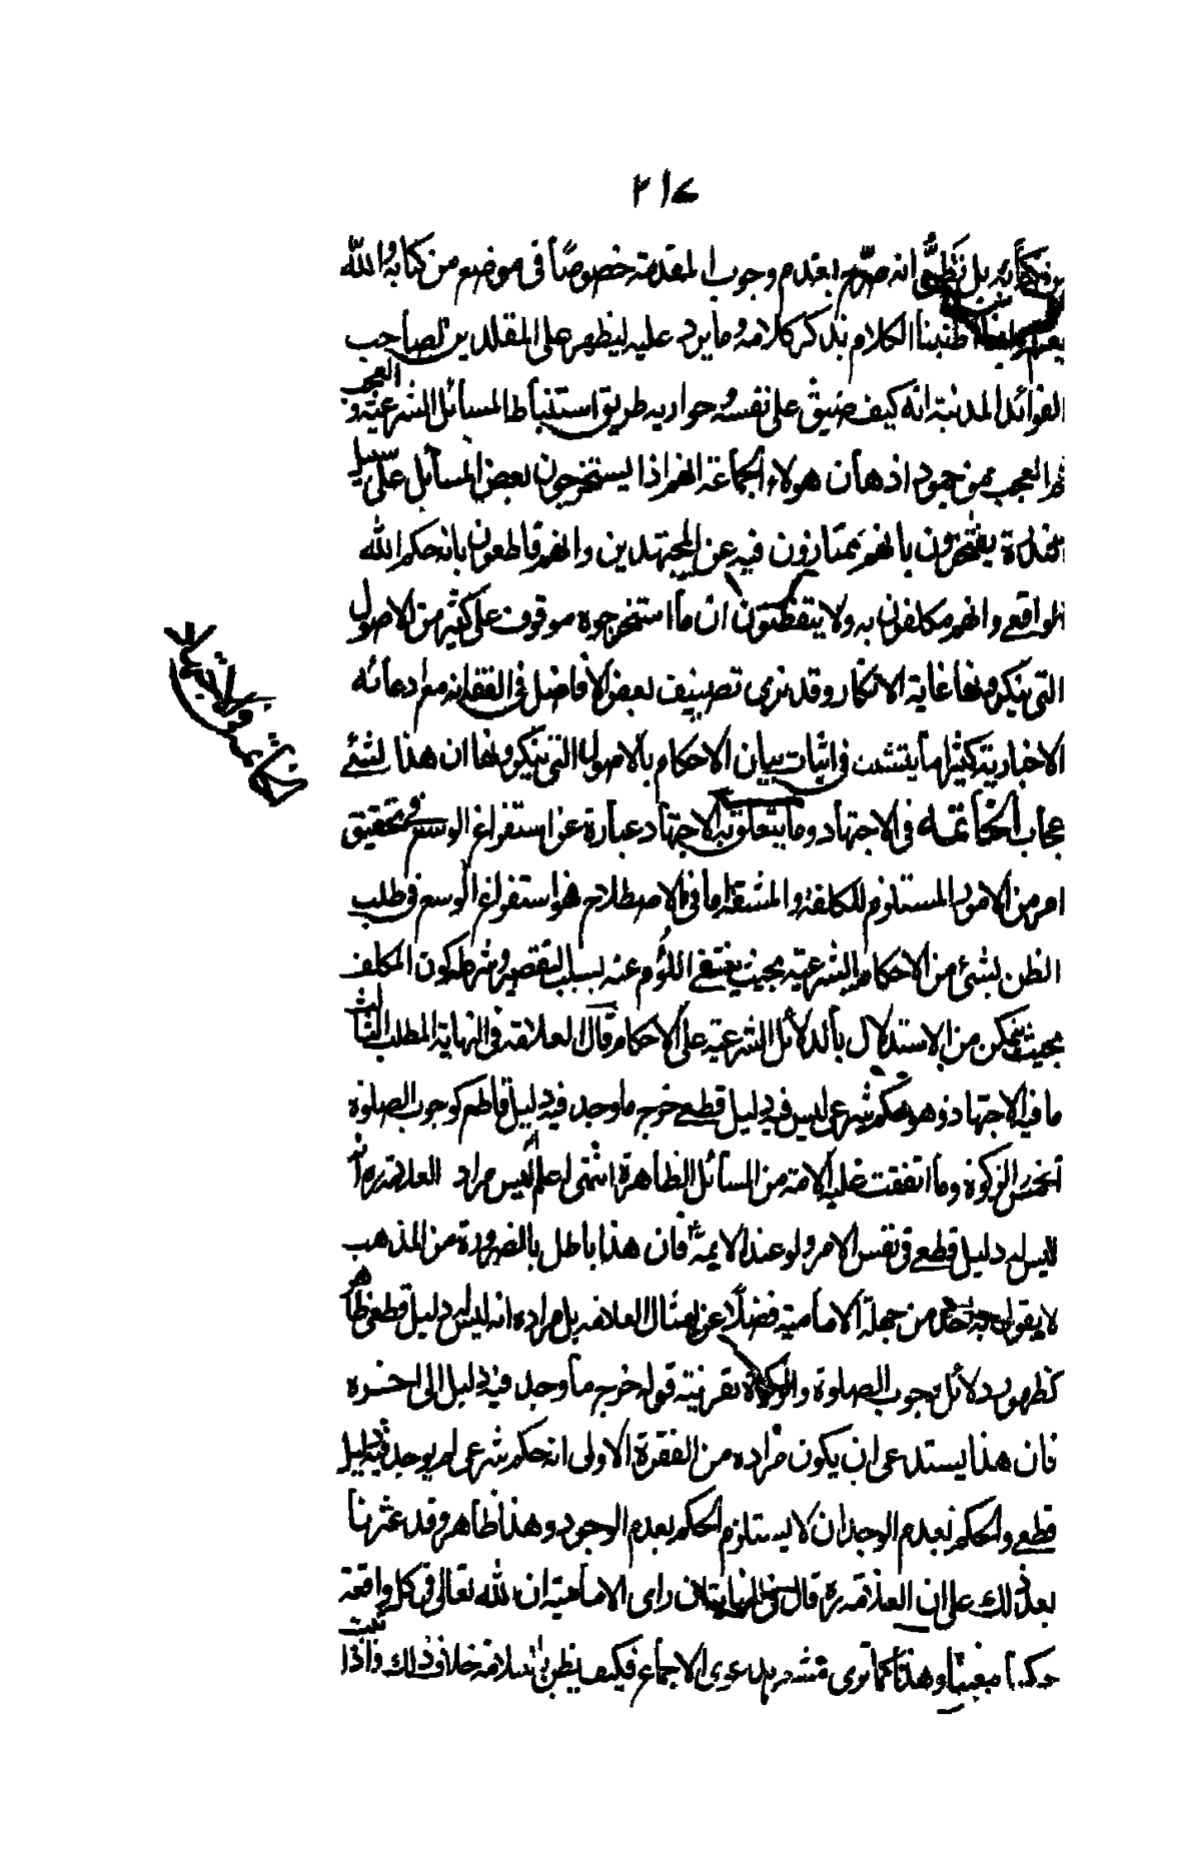 ٢١٤
من كتابه بل نظن انه صرّح بعدم وجوب المقدمة خصوصًا في موضع من كتابه والله
يعلم اطنبنا الكلام بذكر كلامه وما يرد عليه ليظهر على المقلدين لصاحب
الفوائد المدنية انه كيف ضيق على نفسه وحواريه طريق استنباط المسائل الشرعية و العجب
ثم العجب من جمود اذهان هولاء الجماعة انهم اذا يستخرجون بعض المسائل على سبيل
يفتخرون بانهم يمتازون فيه عن المجتهدين وانهم قاطعون بانه حكم الله
الواقعي وانهم مكلفون به ولا يتفطنون ان ما استخرجوه موقوف على كثير من الاصول
التي ينكرونها غاية الانكار وقد نرى تصنيف بعض الافاضل في الفقه انه مع ادعائه
الاخبارية كثيرا ما يتشبث في اثبات بيان الاحكام بالاصول التي ينكرونها ان هذا لشئ
عجاب الخاتمة في الاجتهاد وما يتعلق به الاجتهاد عبارة عن استفراغ الوسع في تحقيق
امر من الامور المستلزم للكلفة والمشقة اما في الاصطلاح فهو استفراغ الوسع في طلب
الظن بشئ من الاحكام الشرعية بحيث ينتفي اللوم عنه بسبب التقصير وشرطه كون المكلف
بحيث يتمكن من الاستدلال بالدلائل الشرعية على الاحكام قال العلامة في النهاية المطلب الثالث
ما فيه الاجتهاد وهو حكم شرعي ليس فيه دليل قطعي خرج ما وجد فيه دليل قاطع كوجوب الصلوة
الخمس والزكوة وما اتفقت عليه الامة من المسائل الظاهرة انتهى اعلم ليس مراد العلامة ره انه
ليس له دليل قطعي في نفس الامر ولو عند الايمة فان هذا باطل بالضرورة من المذهب
لا يقول به احد من جملة الامامية فضلًا عن امثال العلامة بل مراده انه ليس له دليل قطعي ظاهر
كظهور دلائل وجوب الصلوة والزكوة بقرينة قوله خرج ما وجد فيه دليل الى اخره
فان هذا يستدعي ان يكون مراده من الفقرة الاولى انه حكم شرعي لم يوجد فيه دليل
قطعي والحكم بعدم الوجدان لا يستلزم الحكم بعدم الوجود وهذا ظاهر وقد عثرنا
بعد ذلك على ان العلامة ره قال في النهاية ان راي الامامية ان لله تعالى في كل واقعة
حكما معينا وهذا كما ترى مشعر بدعوى الاجماع فكيف يظن بالعلامة خلاف ذلك واذا ثبت
الخاتمة في الاجتهاد